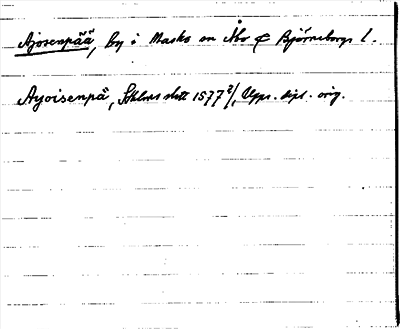 Ajosenpää, by i Masko sn Åbo & Björneborgs l.
Ayoisenpä, Sthlms slott 1577 2/, Upps. dipl. orig.